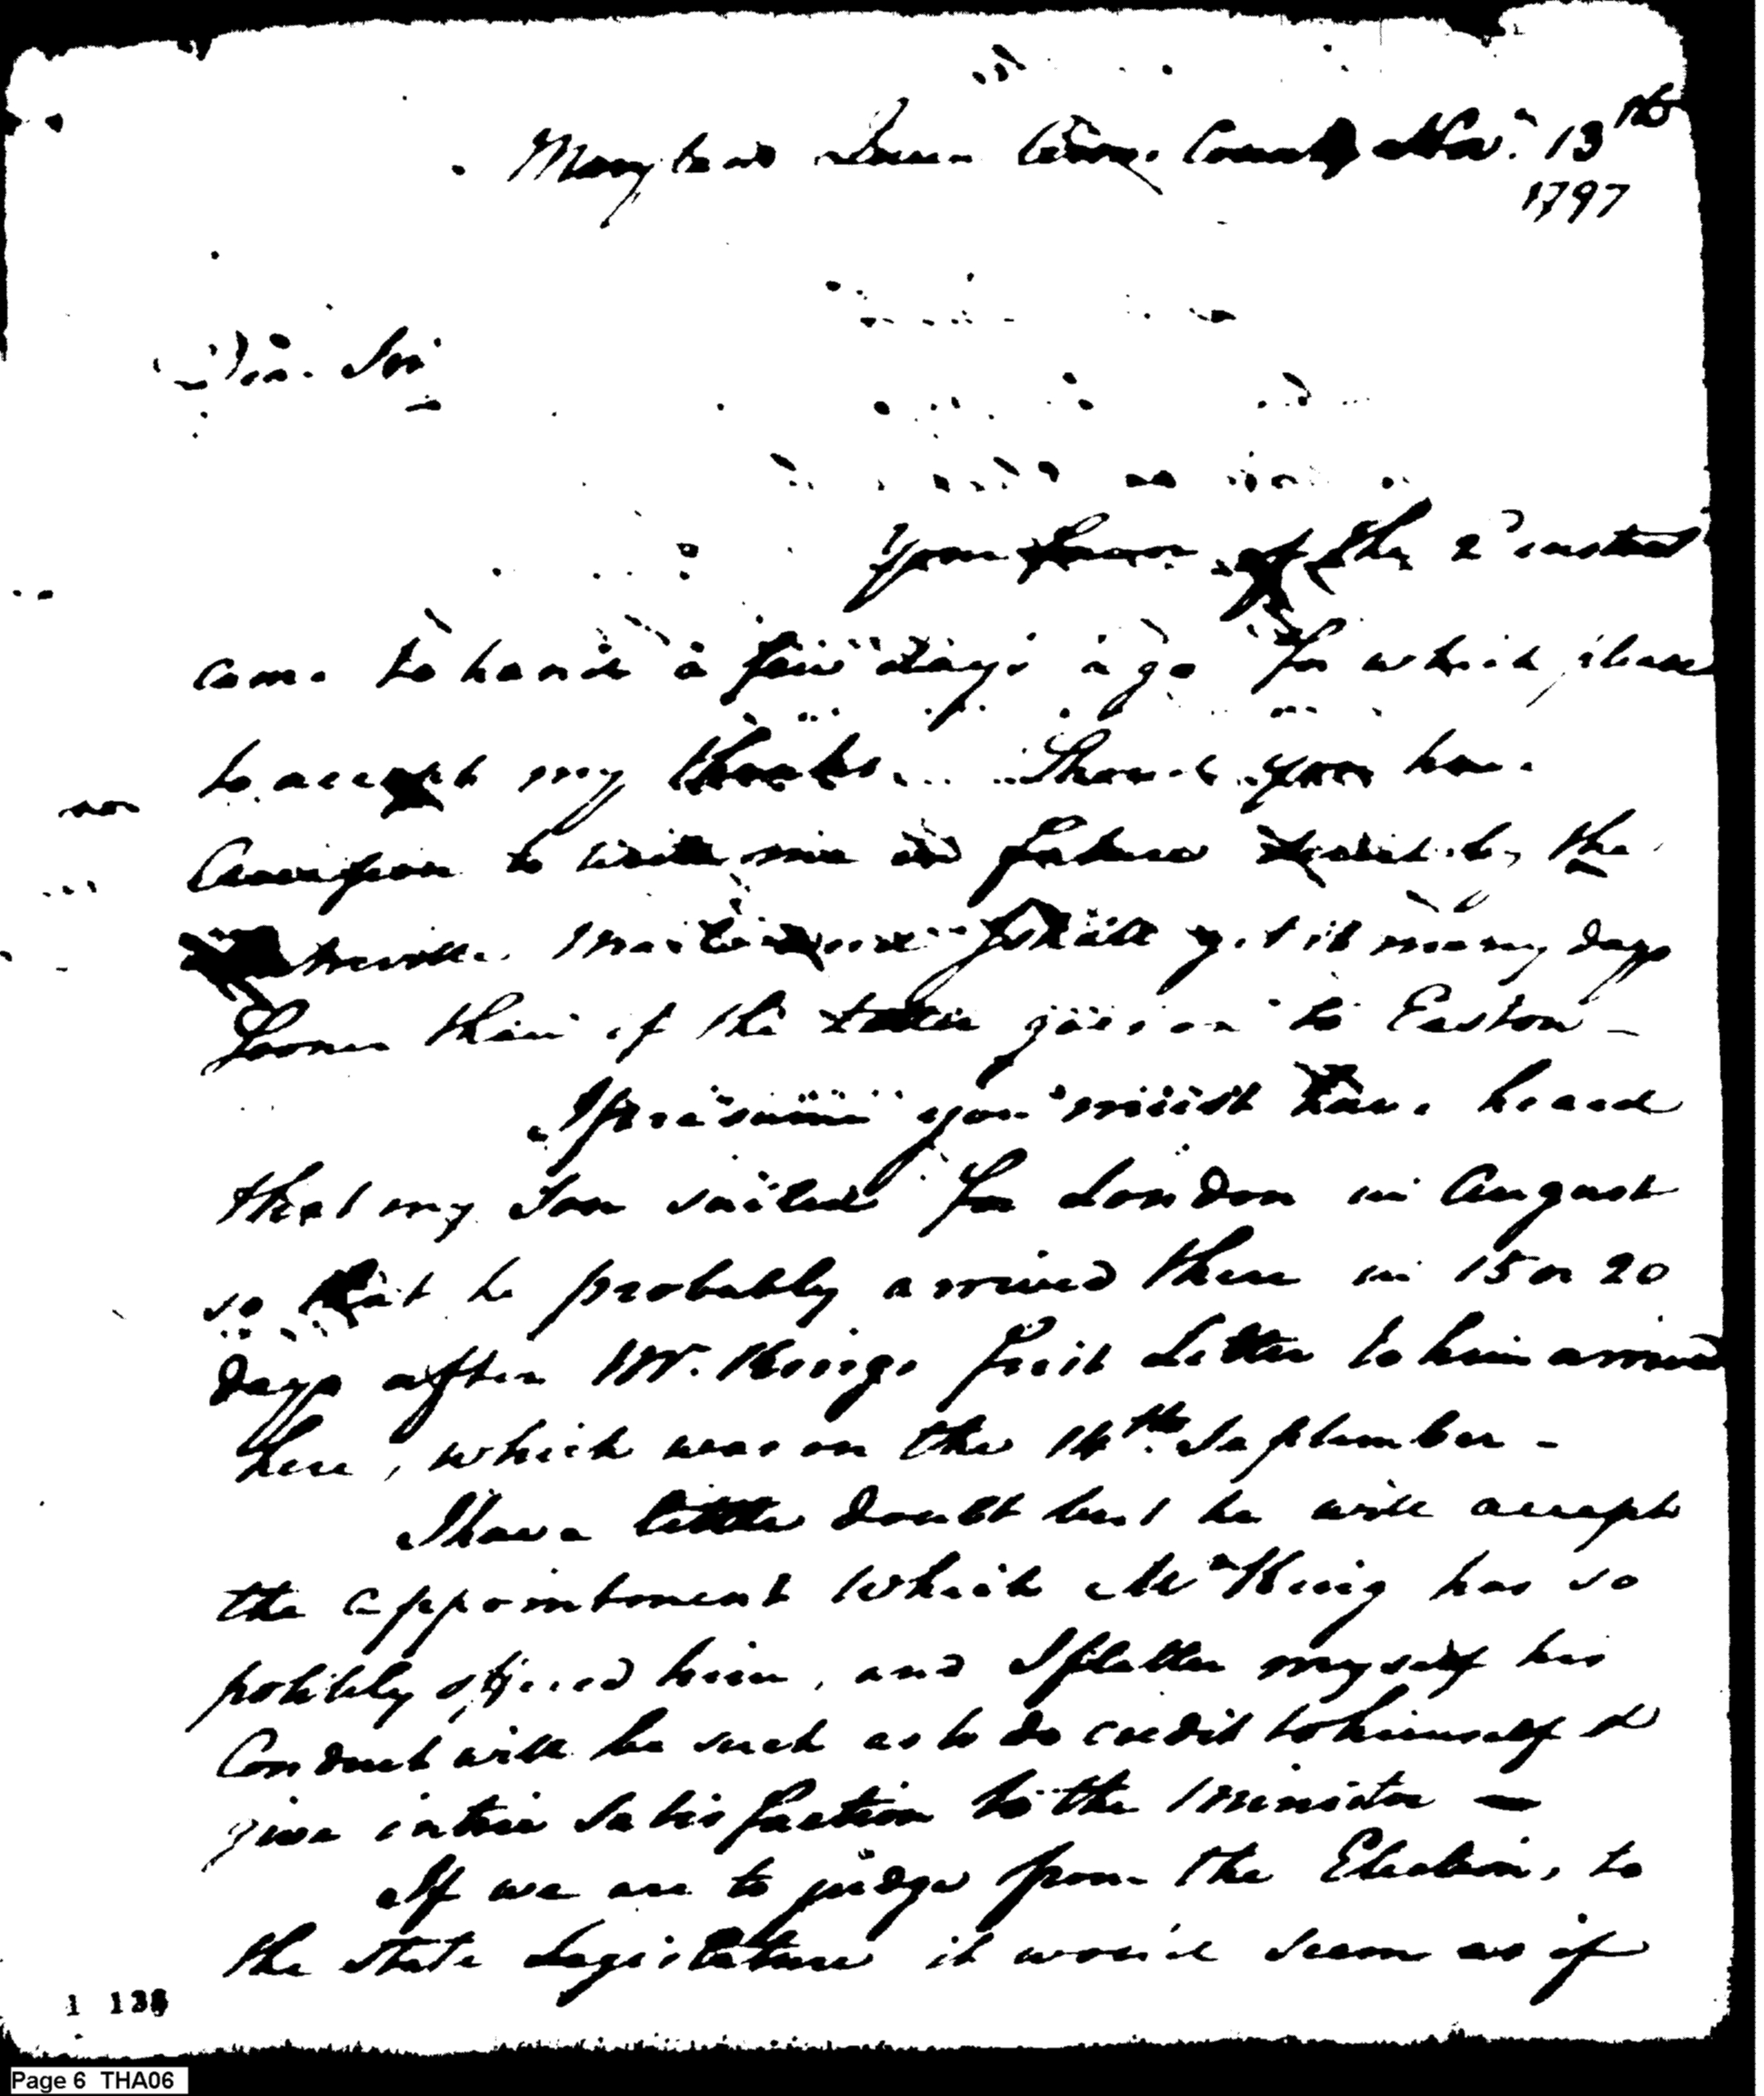 Maryland Queen Anns County Nov. 13th
1797
Dear Sir
Your favor of the 2d instant
came to hand a few days ago for which please
to accept my thanks. Should you have
Occasion to write me in future direct by the
mail I shall get it many days
sooner than if the letter goes on to Easton –
I presume you must have heard
that my Son sailed for London in August
so that he probably arrived there in 15 or 20
days after Mr. Kings first Letter to him arrived
here, which was on the 14th September –
I have little doubt but he will accept
the appointment which Mr King has so
politely offered him, and I flatter myself his
Conduct will be such as to do credit to himself &
give intire Satisfaction to the Minister —
If we are to judge from the Elections to
the State Legislature it would seem as if
1 138
Page 6 THA06